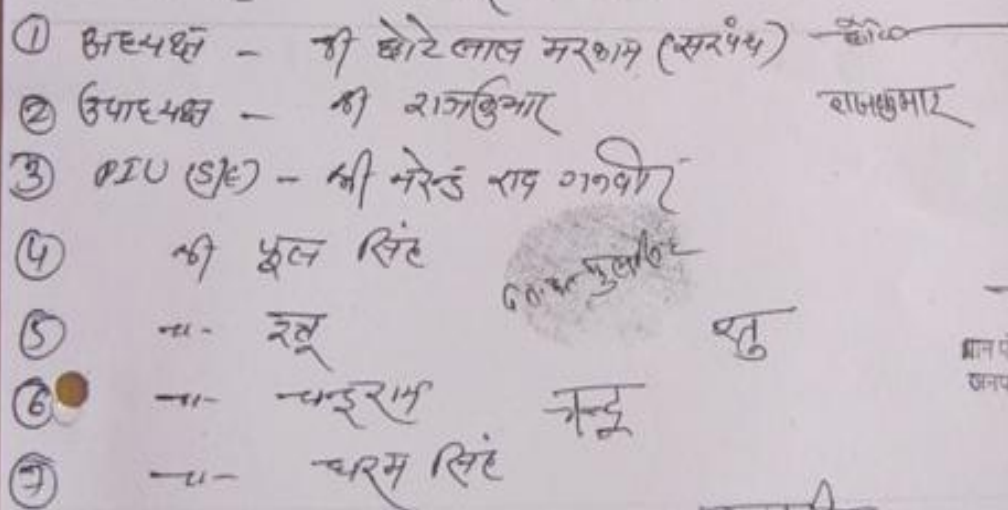 ① अध्यक्ष - श्री छोटे लाल मरकाम (सरपंच) छोटे
② उपाध्यक्ष - श्री राजकुमार राजकुमार
③ PIU (S/E) - श्री नरेन्द्र राव गनवीर
④ श्री फूल सिंह फुलसिंह
⑤ -"- रतू रतु
⑥ -"- चन्दूराम चन्दू
⑦ -"- धरम सिंह